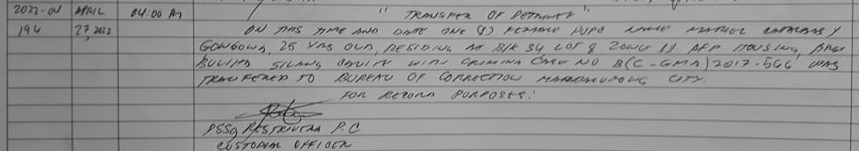 2022-04 APRIL 04:00 AM " TRANSFER OF DETAINEE "
194 27, 2022 ON THIS TIME AND DATE ONE (1) FEMALE PUPC NAME
GONGOWA, 25 YRS OLD, RESIDING AT BLK 34 LOT 8 ZONE 11 AFP HOUSING, BRGY
BULIHA SILANG CAVITE WITH CRIMINAL CASE NO B(C-GMA) 2017-566 WAS
TRANSFERED TO BUREAU OF CORRECTION MANDALUYONG CITY.
FOR RECORD PURPOSES.
PSSg P.C
CUSTODIAL OFFICER